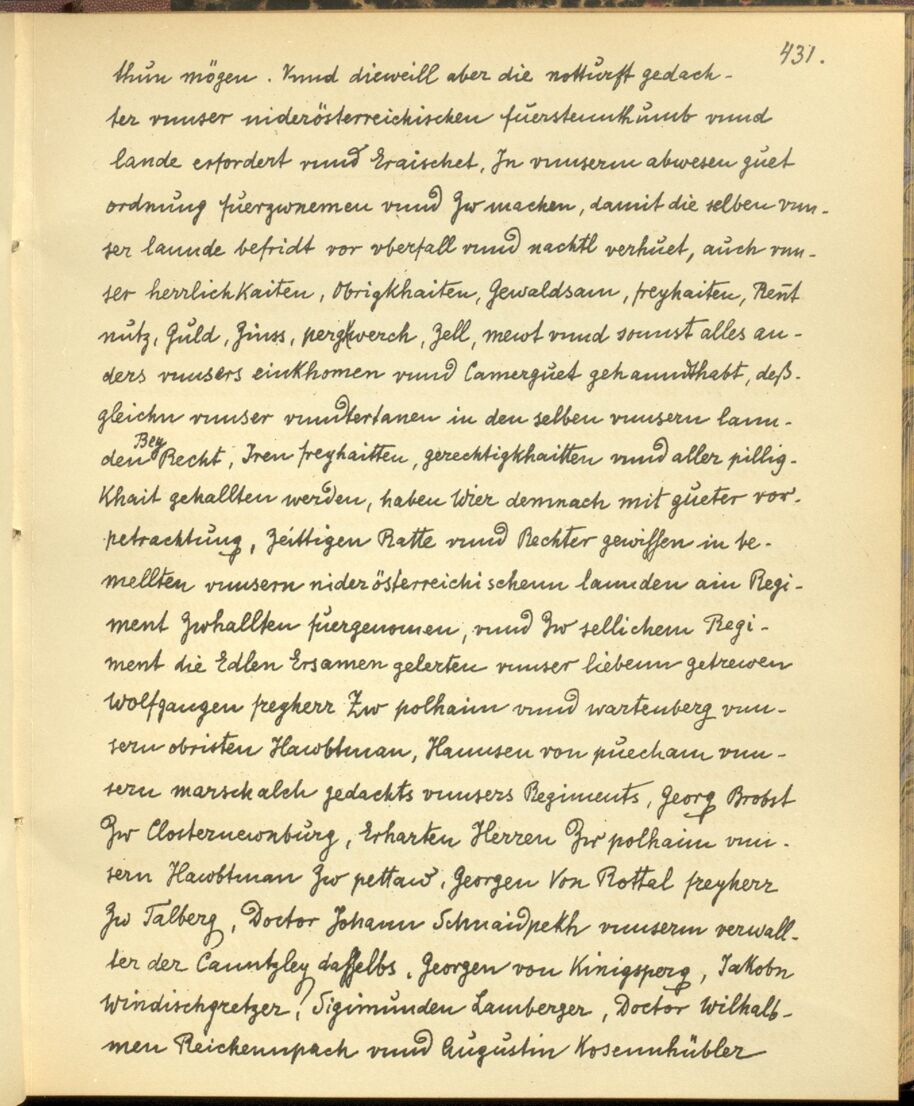 431.
thun mögen. Vnnd dieweill aber die notturft gedach-
ter vnnser niderösterreichischen fuerstennthumb vnnd
lande erfordert vnnd Eraischet, In vnnserm abwesen guet
ordnung fuerzwnemen vnnd Zw machen, damit die selben vnn-
ser lannde befridt vor vberfall vnnd nachtl verhuet, auch vnn-
ser herrlichkaiten, Obrigkhaiten, Gewaldsam, freyhaiten, Rent
nutz, Guld, Zinss, pergkwerch, Zell, mewt vnnd sonnst alles an-
ders vnnsers einkhomen vnnd Camerguet gehanndthabt, deß-
gleichn vnnser vnndtertanen in den selben vnnsern lann-
den Bey Recht, Iren freyhaitten, gerechtigkhaitten vnnd aller pillig-
Khait gehallten werden, haben Wier demnach mit gueter vor-
petrachtung, Zeittigen Ratte vnnd Rechter gewissen in be-
mellten vnnsern niderösterreichischenn lannden ain Regi-
ment Zwhallten fuergenomen, vnnd Zw sellichem Regi-
ment die Edlen Ersamen gelerten vnnser liebenn getrewen
Wolfgangen freyherr Zw polhaim vnnd wartenberg vnn-
sern obristen Hawbtman, Hannsen von puecham vnn-
sern marschalch gedachts vnnsers Regiments, Georg Brobst
Zw Closternewnburg, Erharten Herren Zw polhaim vnn-
sern Hawbtman Zw pettaw, Georgen Von Rottal freyherr
Zw Talberg, Doctor Johann Schnaidpekh vnnserm verwall-
ter der Canntzley dasselbs, Georgen von Kinigsperg, Jakobn
Windischgretzer, Sigimunden Lamberger, Doctor Wilhalb-
men Reichennpach vnnd Augustin Kosennhübler